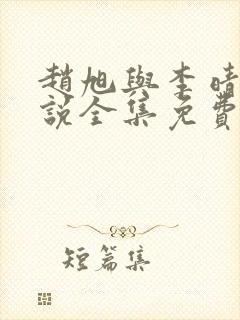 趙旭與李晴
說全集免費
短篇集